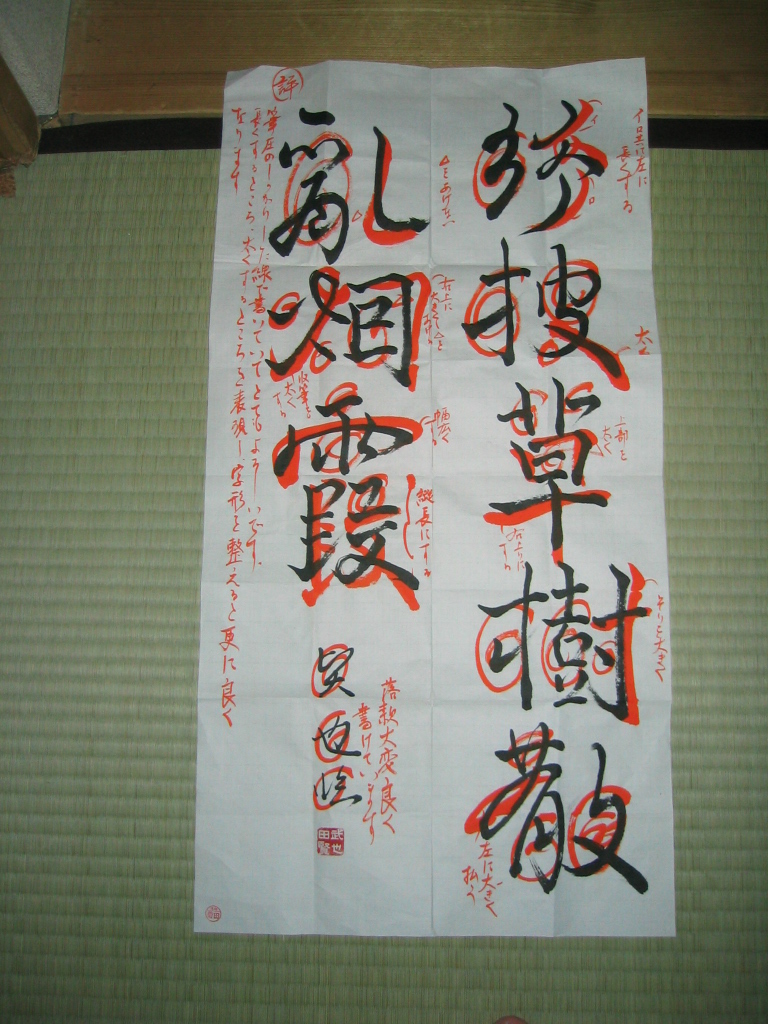 搜草樹散
亂烟霞
賢也臨
武田
賢也
左に
長くする
イ
ロ
太く
上部を
右上りに
する
そりを大きく
左に大きく
払う
右上に
幅広く
する
縦長にする
収筆を
太く
する
落款大変良く
書けています
評
筆圧のしっかりした線で書いていてとてもよろしいです。
長くするところ、太くするところを表現し、字形を整えると更に良く
なります